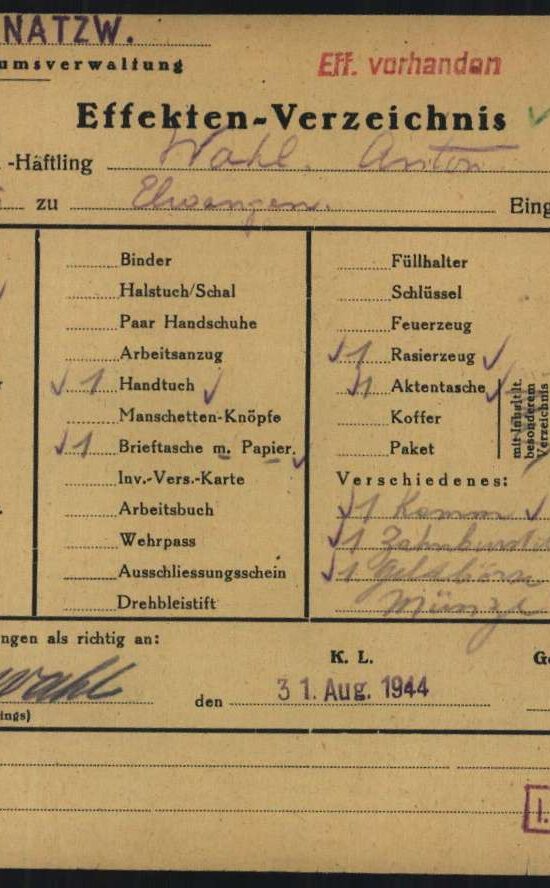 NATZW.
umsverwaltung
Eff. vorhanden
Effekten-Verzeichnis
-Häftling Wahl, Anton
zu Elwangen. Eing
Binder
Halstuch/Schal
Paar Handschuhe
Arbeitsanzug
1 Handtuch
Manschetten-Knöpfe
1 Brieftasche m. Papier.
Inv.-Vers.-Karte
Arbeitsbuch
Wehrpass
Ausschliessungsschein
Drehbleistift
Füllhalter
Schlüssel
Feuerzeug
1 Rasierzeug
1 Aktentasche
Koffer
Paket
mit Inhalt lt.
besonderem
Verzeichnis
Verschiedenes:
1 Kamm
1 Zahnbürste
1 Geldbörse
Münze
ngen als richtig an:
K. L.
Ge
wahl
den 31. Aug. 1944
ings)
I.